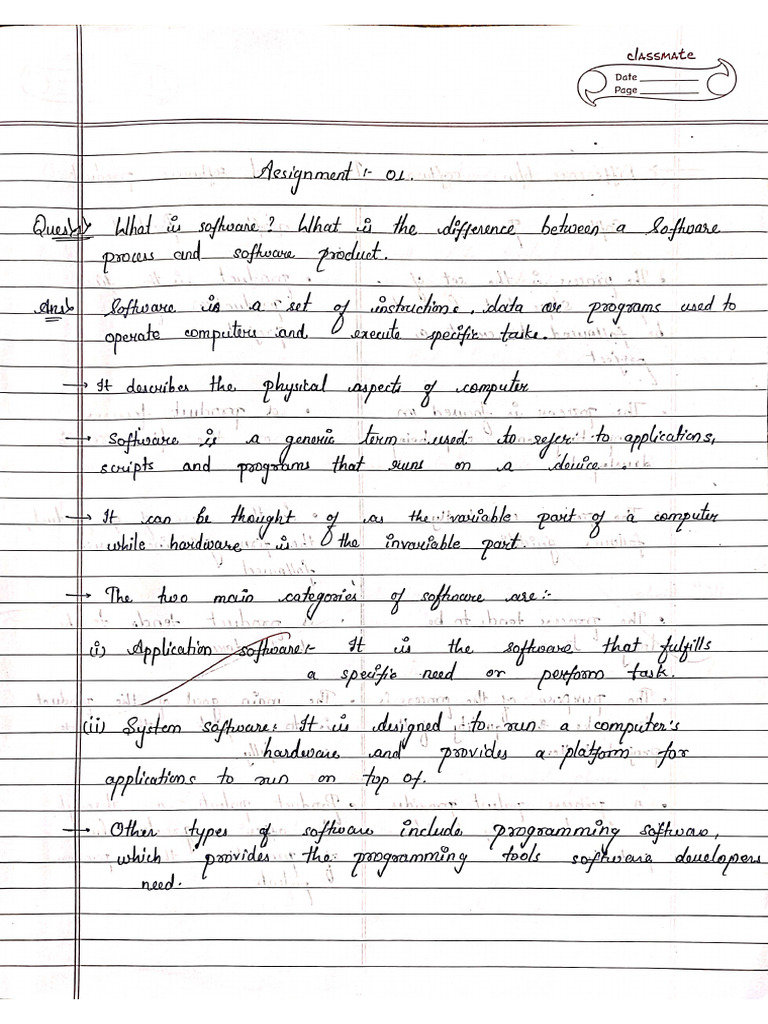 classmate
Date
Page
Assignment :- 01.
Ques1) What is software? What is the difference between a software
process and software product.
Ans) Software is a set of instructions, data or programs used to
operate computers and execute specific tasks.
→ It describes the physical aspects of computer
→ Software is a generic term used to refer to applications,
scripts and programs that runs on a device.
→ It can be thought of as the variable part of a computer
while hardware is the invariable part.
→ The two main categories of software are:-
(i) Application software:- It is the software that fulfills
a specific need or perform task.
(ii) System software: It is designed to run a computer's
hardware and provides a platform for
applications to run on top of.
→ Other types of software include programming software,
which provides the programming tools software developers
need.